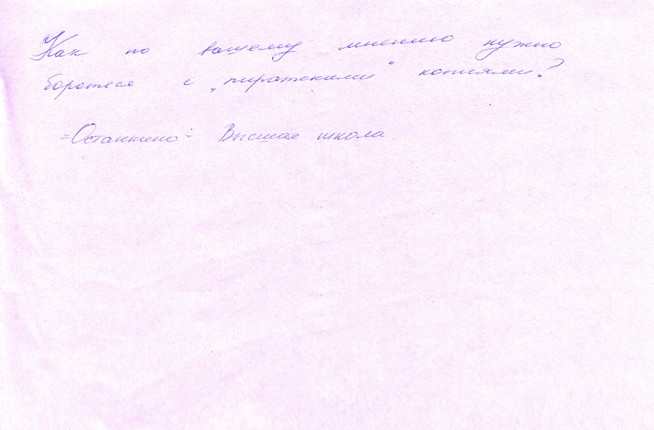 Как по вашему мнению нужно
боротесе с „пиратскими“ копиями?
"Останкино" Высшая школа